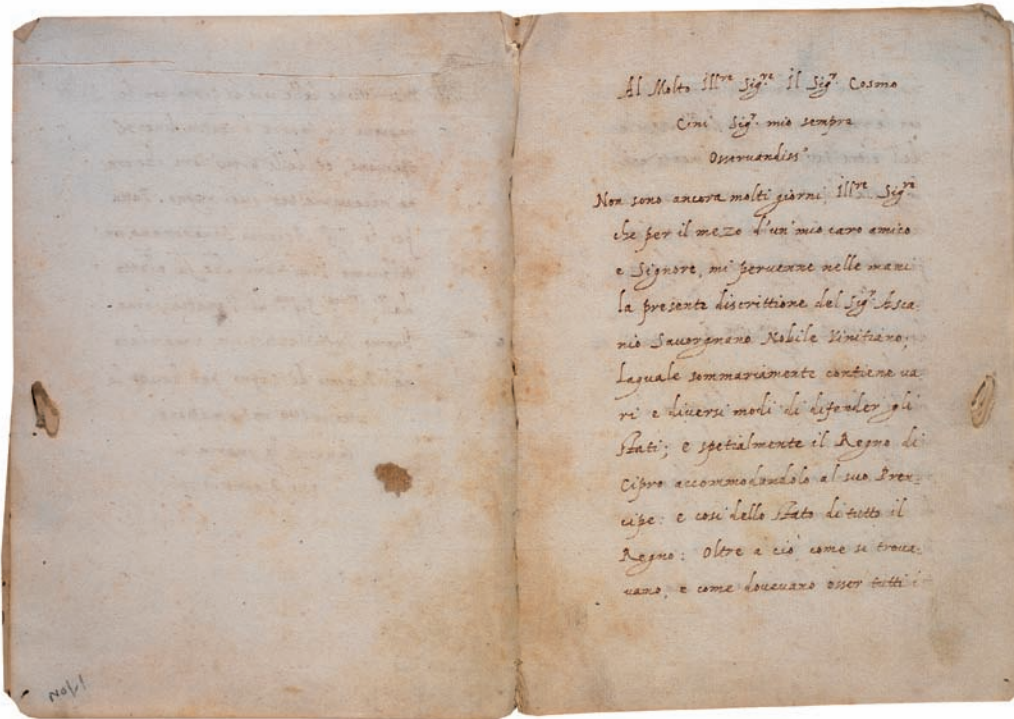 Al Molto Ill.re Sig.re Il Sig.r Cosmo
Cini Sig.r mio sempre
Osservandiss.o
Non sono ancora molti giorni Ill.re Sig.re
che per il mezo d'un' mio caro amico
e Signore, mi pervenne nelle mani
la presente discrittione del Sig.r Asca-
nio Savorgnano Nobile Vinitiano;
laquale sommariamente contiene va
ri e diversi modi di difender gli
stati; e spetialmente il Regno di
Cipro accommodandolo al suo Pren-
cipe: e cosi dello stato di tutto il
Regno: Oltre a ciò come si trova-
vano, e come dovevano esser tutti i